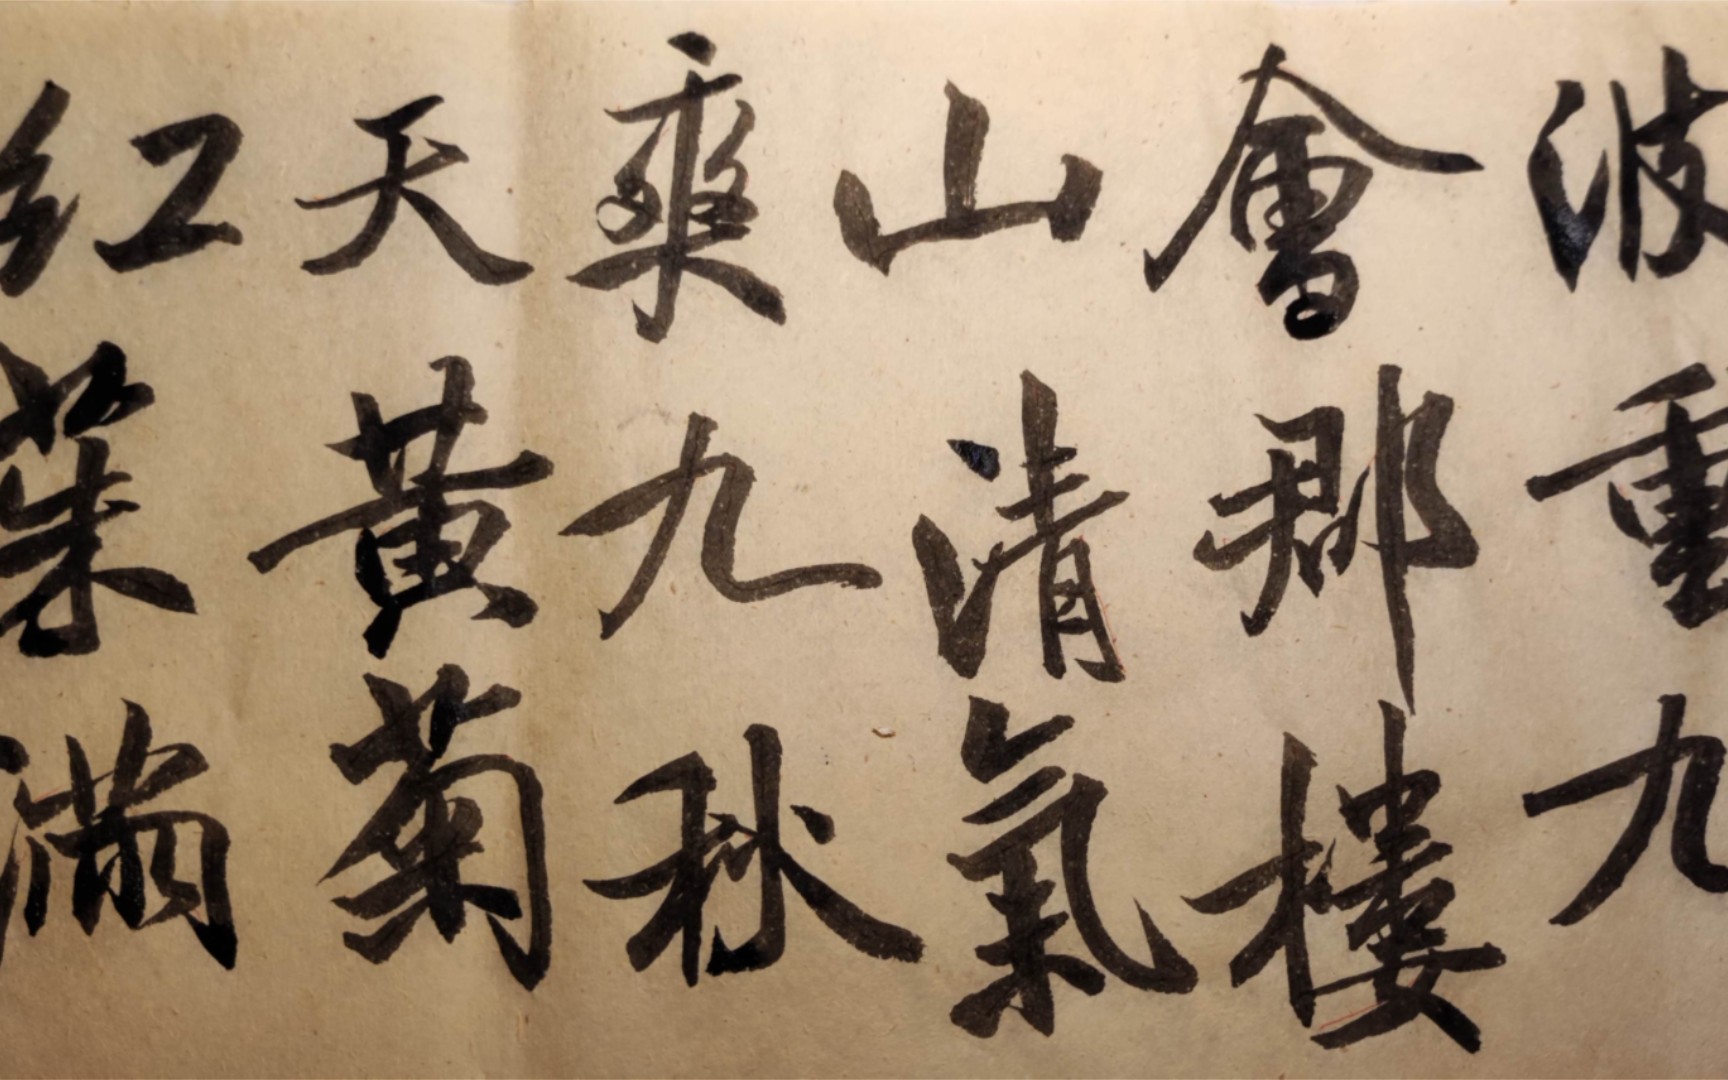 波重九
會郡樓
山清氣
爽九秋
天黄菊
红茱滿